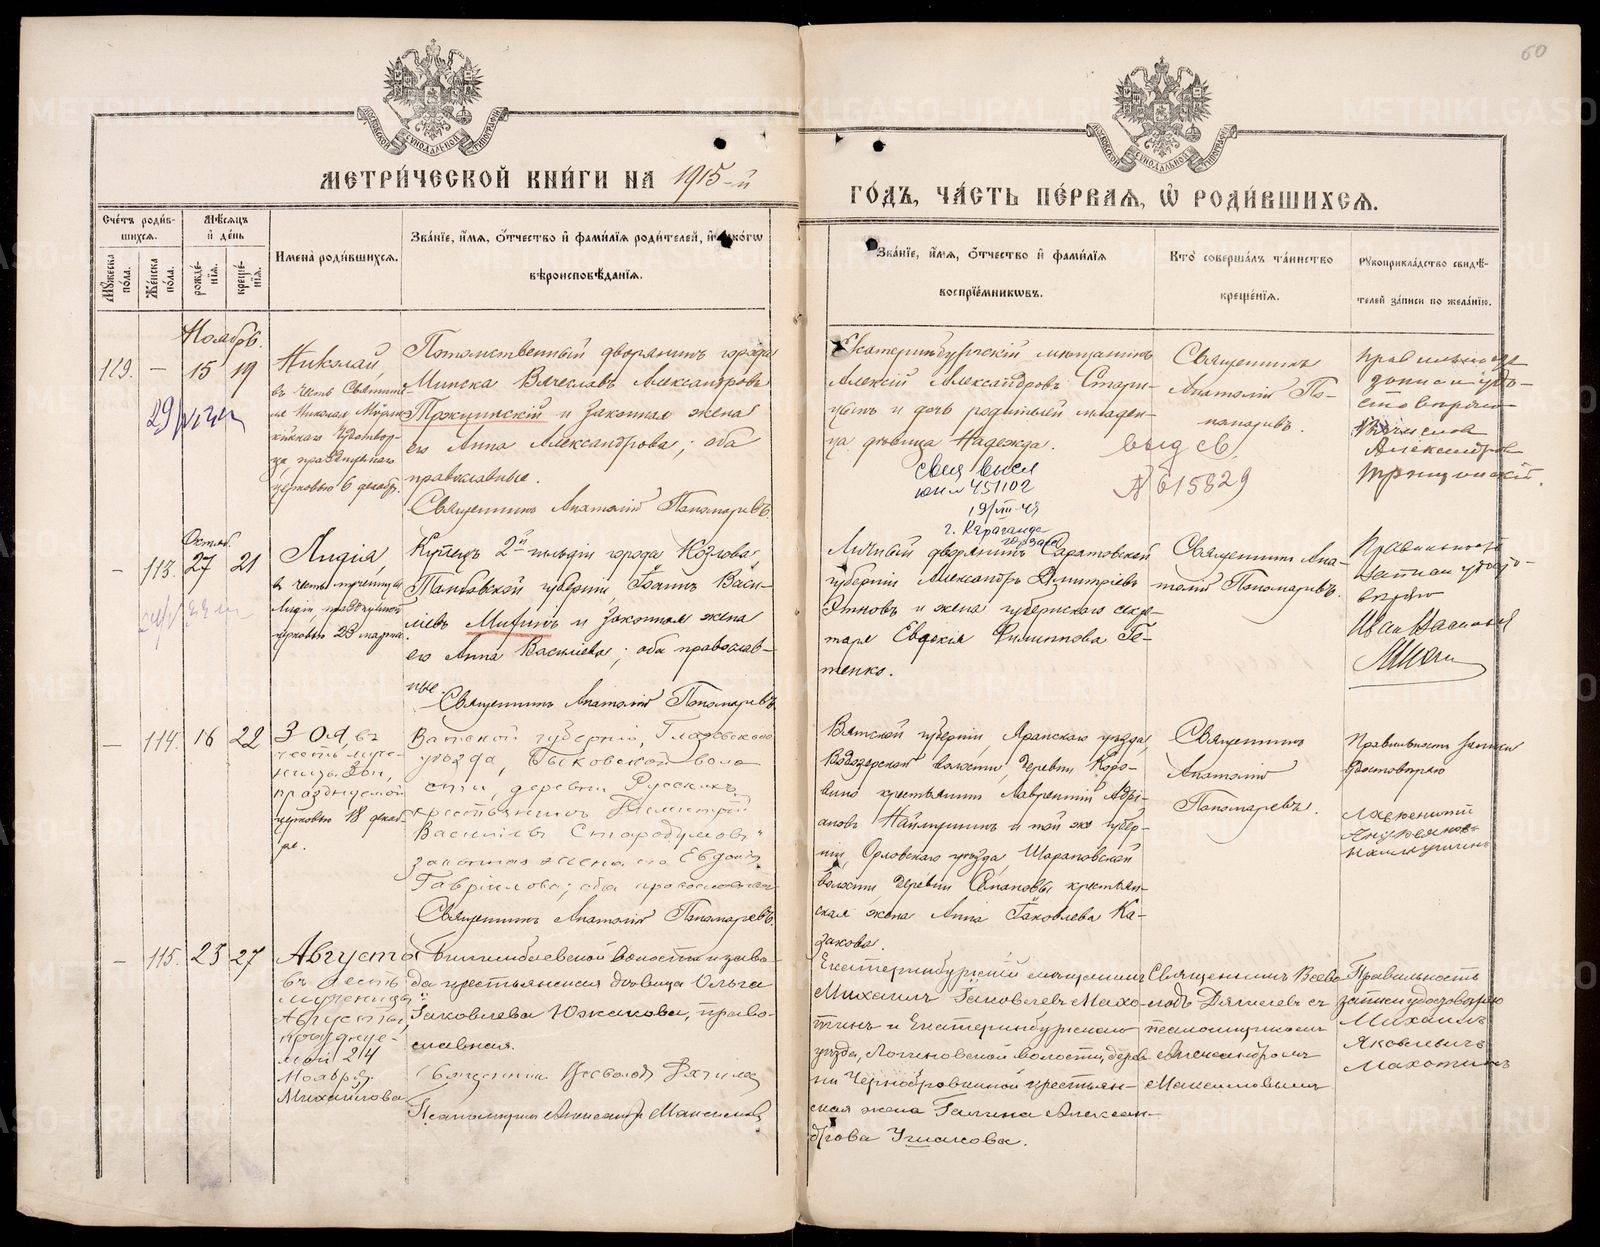 60
МЕТРИ́ЧЕСКОЙ КНИ́ГИ НА 1915-й
ГО́ДЪ, ЧА́СТЬ ПЕ́РВАѦ, Ѡ҆ РОДИ́ВШИХСѦ.
Счетъ родив-
шихсѧ.
Мѣсѧцъ
и день
Мꙋжеска
пола.
Женска
пола.
рожде-
нїѧ.
креще-
нїѧ.
Имена родившихсѧ.
Званїе, имѧ, ѻтчество и фамилїѧ родителей, и какогѡ
вѣроисповѣданїѧ.
Званїе, имѧ, ѻтчество и фамилїѧ
воспрїемникѡвъ.
Кто совершалъ таинство
крещенїѧ.
Рꙋкоприкладство свидѣ-
телей записи по желанїю.
Ноябрь.
119. — 15 19
Николай,
въ честь Святите-
ля Николая Мѵрли-
кійскаго Чудотвор-
ца, празднуемаго
церковью 6 декабр.
Потомственный дворянинъ города
Минска Вячеславъ Александровъ
Троцинскій и законная жена
его Анна Александрова; оба
православные.
Священникъ Анатолій Пономаревъ.
Екатеринбургскій мѣщанинъ
Алексій Александровъ Стари-
цынъ и дочь родителей младен-
ца дѣвица Надежда.
выд св.
№ 615829
свид высл
юн № 451102
19/VIII-49
г. Караганда
Священникъ
Анатолій По-
номаревъ.
Правильность
записи удо-
стовѣряю
Вячеславъ
Александров
Троцинскій.
Октяб.
— 113. 27 21
Лидія,
въ честь мученицы
Лидіи празднуемой
церковью 23 марта.
Купецъ 2й гильдіи города Козлова,
Тамбовской губерніи Іоаннъ Васи-
ліевъ Митинъ и законная жена
его Анна Василіева; оба православ-
ные.
Священникъ Анатолій Пономаревъ.
Личный дворянинъ Саратовской
губерніи Александръ Димитріевъ
и жена губернскаго секре-
таря Евдокія Филиппова Ге-
тенко.
Священникъ Ана-
толій Пономаревъ.
Правильность
записи удосто-
вѣряю
Иванъ Васильев
— 114. 16 22
Зоя, въ
честь муче-
ницы Зои,
празднуемой
церковью 18 декаб-
ря.
Вятской губерніи, Глазовского
уѣзда, Быковской воло
сти, деревни Русскихъ
крестьянинъ Димитрій
Васильевъ Стародумовъ и
законная жена его Евдокія
Гавріилова; оба православные
Священникъ Анатолій Пономаревъ.
Вятской губерніи, Яранскаго уѣзда,
Водозерской волости, деревни Коро-
вина крестьянинъ Лаврентій Адрі-
ановъ Наймушинъ и той же губер-
ніи, Орловскаго уѣзда Шараповской
волости деревни Степановы крестьян-
ская жена Анна Іаковлева Ка-
закова.
Священникъ
Анатолій
Пономаревъ.
Правильность записи
удостовѣряю
Лаврентій
Наймушинъ
— 115. 23 27
Августа
въ честь
мученицы
Августы,
празднуе-
мой 24
Ноября.
Михайлова
Билимбаевской волости и заво-
да крестьянская дѣвица Ольга
Іаковлева Южакова, право-
славная.
Священникъ Всеволодъ Дягилев
Псаломщикъ Александръ Максимовъ
Екатеринбургскій мѣщанинъ
Михаилъ Іаковлевъ Махо-
тинъ и Екатеринбургскаго
уѣзда, Логиновской волости, дерев
ни Чернобровкиной крестьян-
ская жена Галина Алексан-
дрова Ушакова.
Священникъ Всево
лодъ Дягилевъ съ
псаломщикомъ
Александромъ
Максимовымъ
Правильность
записи удостовѣряю
Михаилъ
Яковлевичъ
Махотинъ